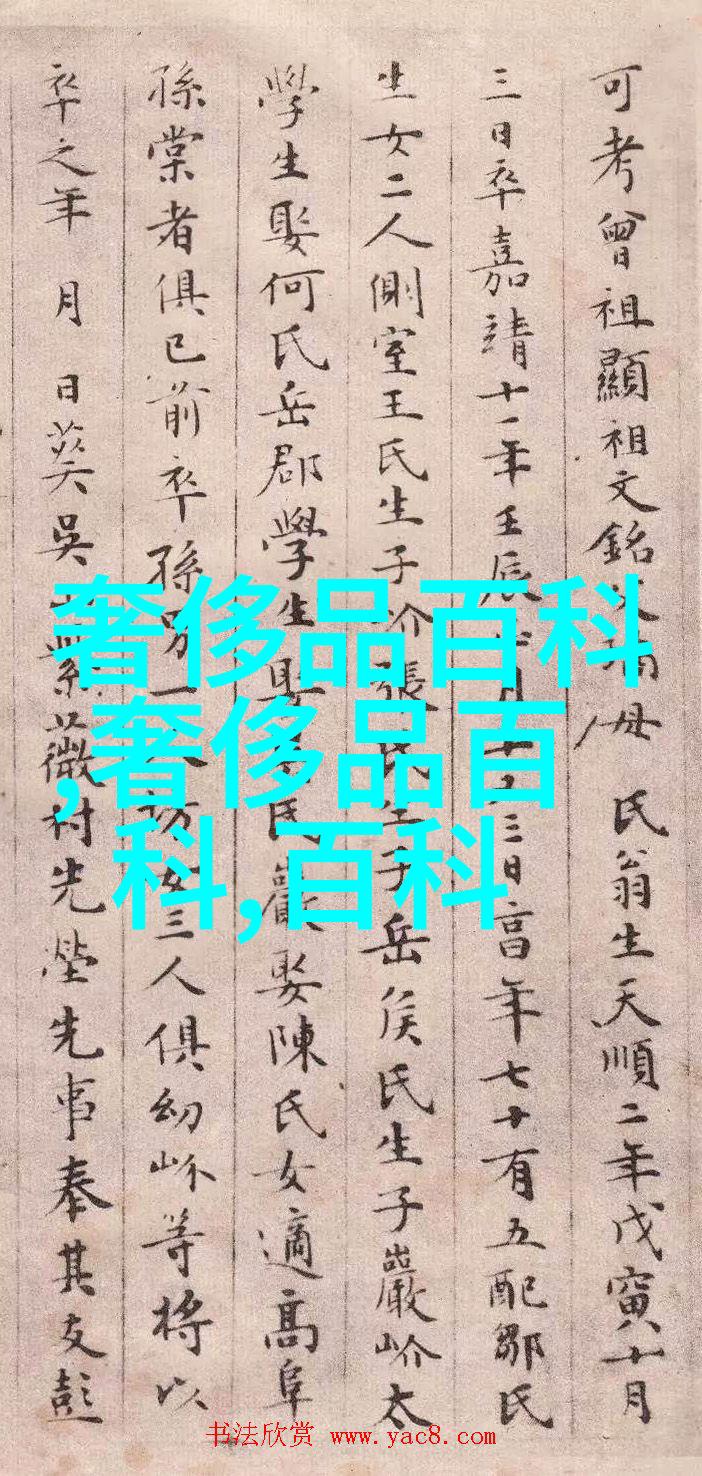 可考曾祖顯祖文銘父 母 氏翁生天順二年戊寅十月
三日卒嘉靖十一年壬辰 月十 三日高年七十有五配鄒氏
生女二人側室王氏生子岕張氏生子岳侯氏生子巖岕太
學生娶何氏岳郡學生娶 氏巖娶陳氏女適高阜
孫棠者俱已前卒孫男一人 女三人俱幼岕等將以
卒之年 月 日葬吳 紫薇村先塋先事奉其友彭
奢侈品百科
,奢侈品百
科,百科
书法欣赏 www.yac8.com